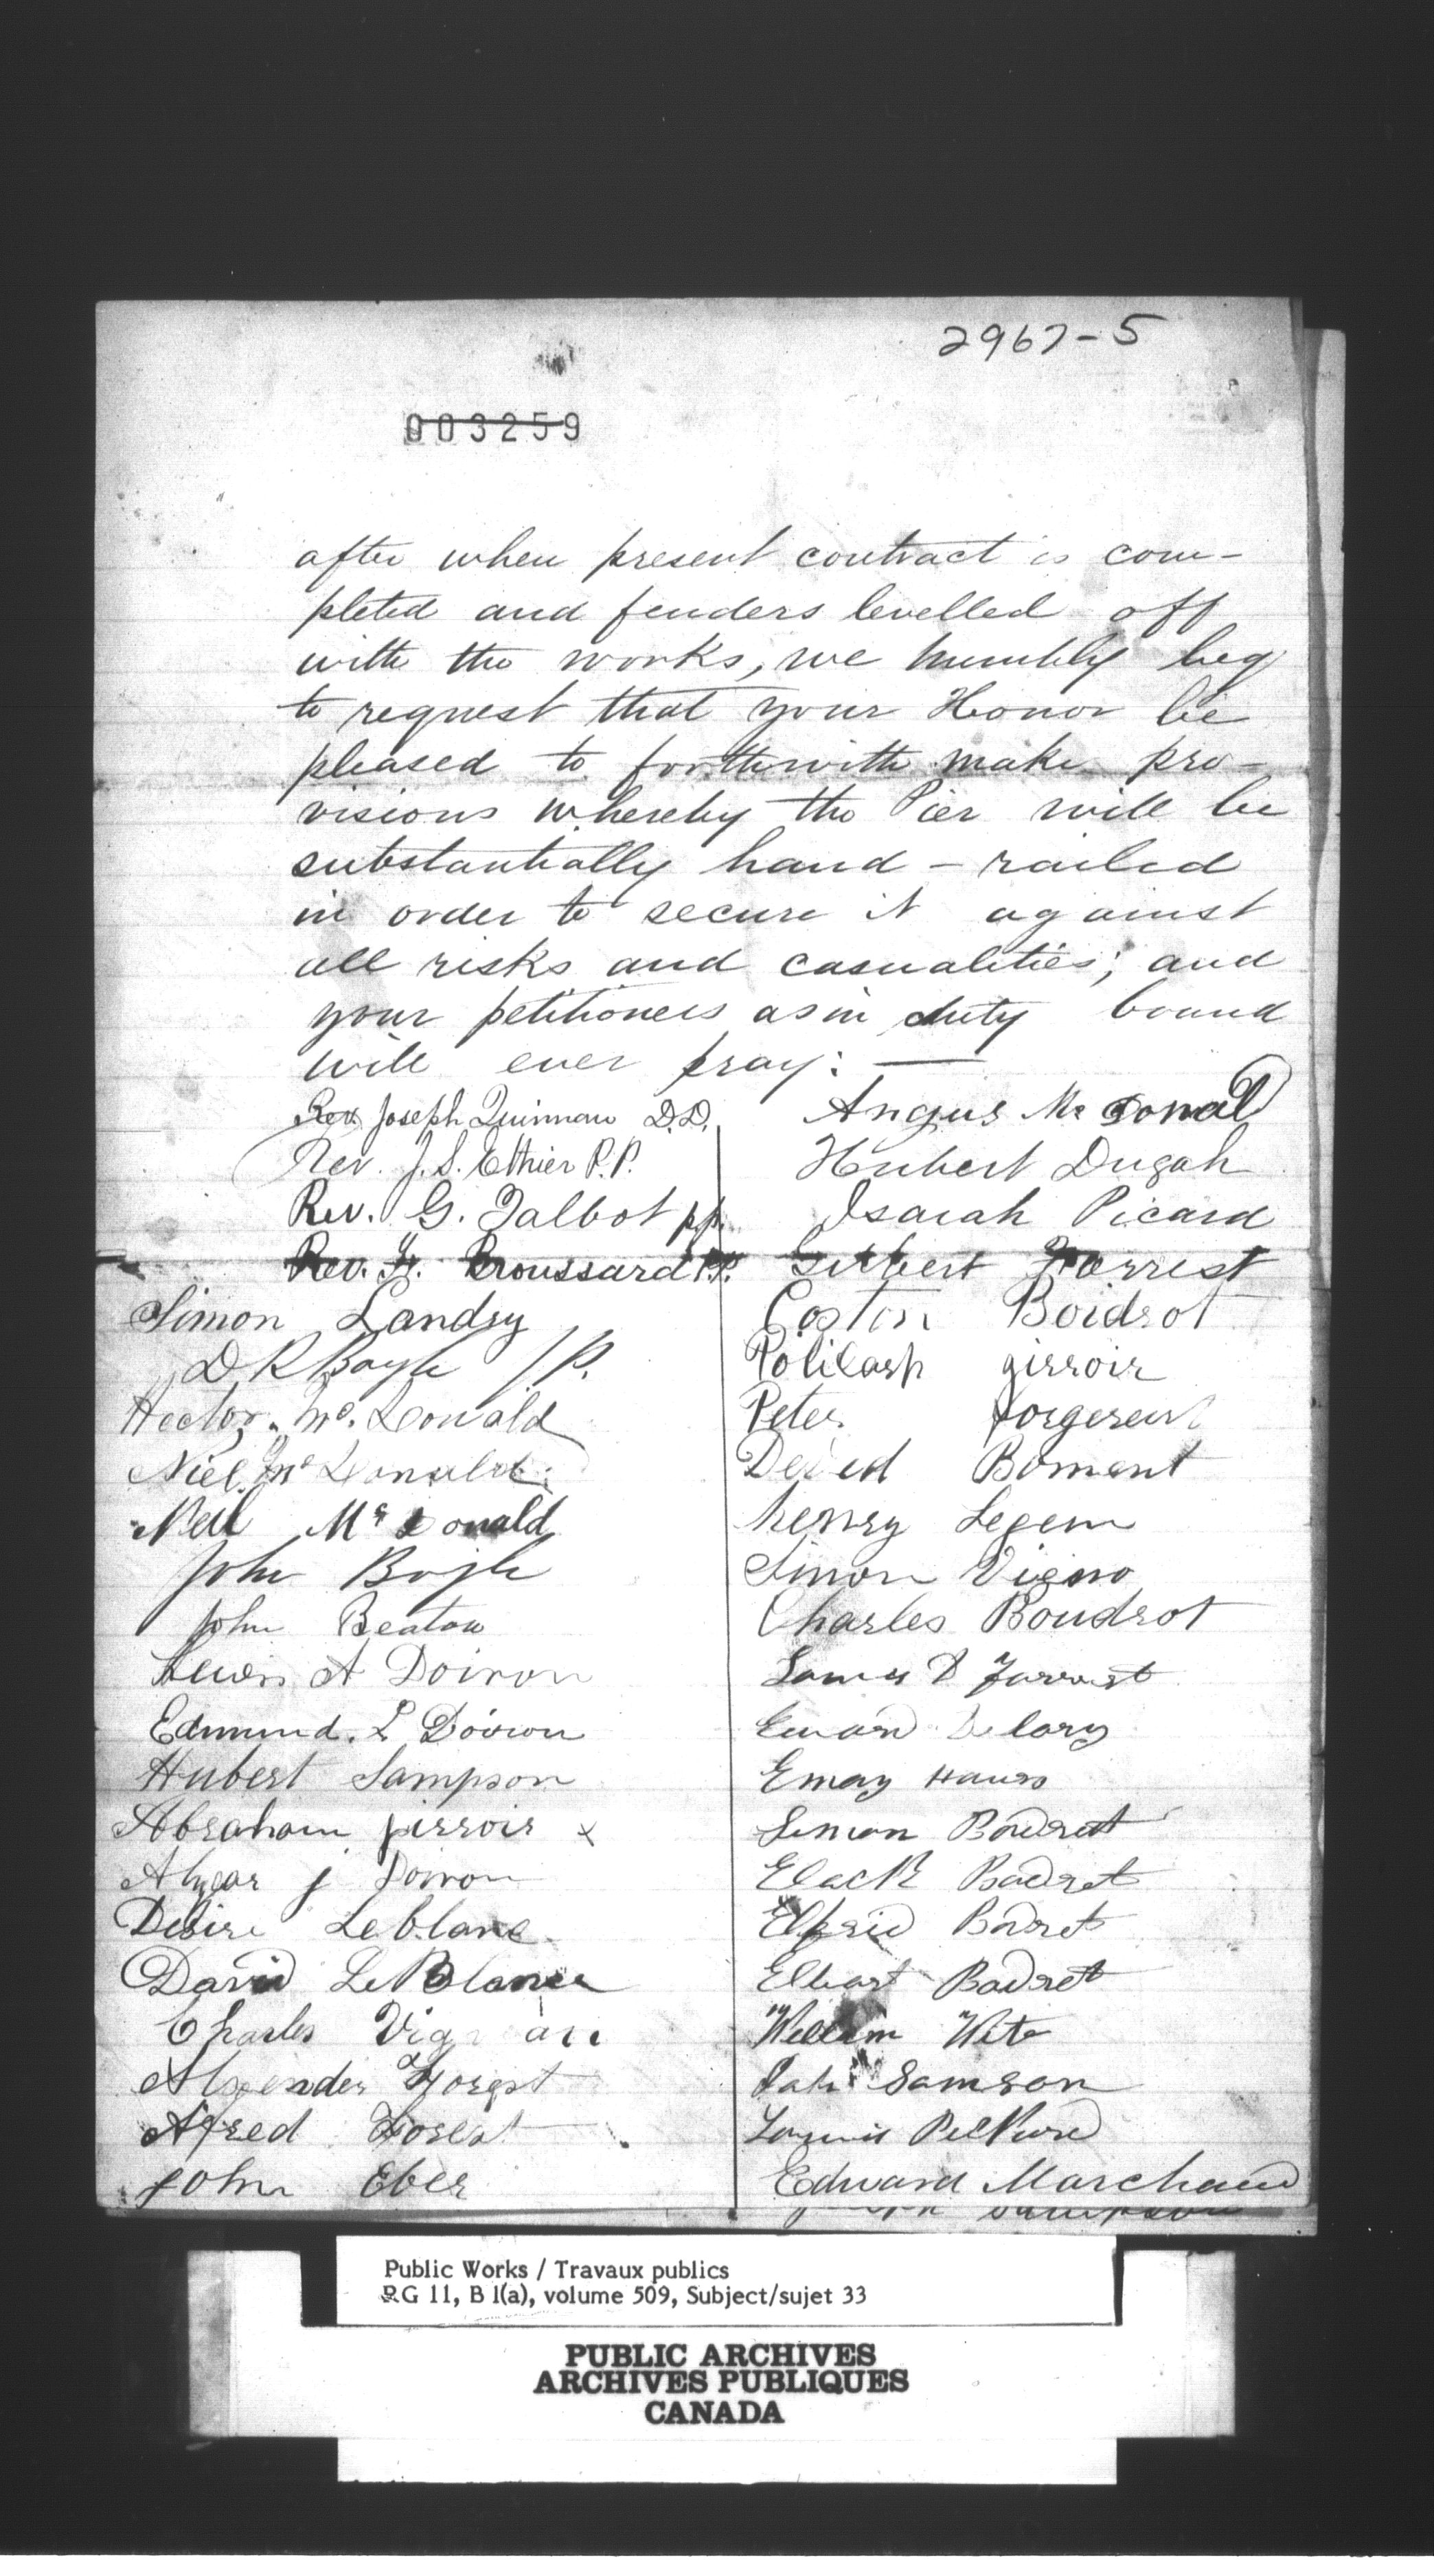 2967-5
003259
after when present contract is com-
pleted and fenders levelled off
with the works, we humbly beg
to request that your Honor be
pleased to forthwith make pro-
visions whereby the Pier will be
substantially hand-railed
in order to secure it against
all risks and casualities; and
your petitioners as in duty bound
will ever pray:—
Rev. Joseph Quinnan D.D.
Rev. J. S. Ethier P.P.
Rev. G. Talbot p.p.
Rev. Broussard P.P.
Simon Landry
D R Boyle J P.
Hector Mc. Donald
Niel Mc Donald
Neil Mc Donald
John Boyle
John Beaton
Lewis A Doiron
Edmund. L Doiron
Hubert Sampson
Abraham jirroir x
j Doiron
Desire Leblanc
David LeBlance
Charles
Forest
Alfred Forest
John Eber
Angus Mc Donald
Hubert Dugah
Isaiah Picard
Gilbert Forrest
Coston Boidrot
Polikarp girroir
Peter
Boment
henry
Simon Vigno
Charles Boudrot
James D Forrest
Delory
Simon Bowdret
Badret
Badret
Elbart Badret
William Wite
Samson
Edward Marchand
Public Works / Travaux publics
RG 11, B 1(a), volume 509, Subject/sujet 33
PUBLIC ARCHIVES
ARCHIVES PUBLIQUES
CANADA